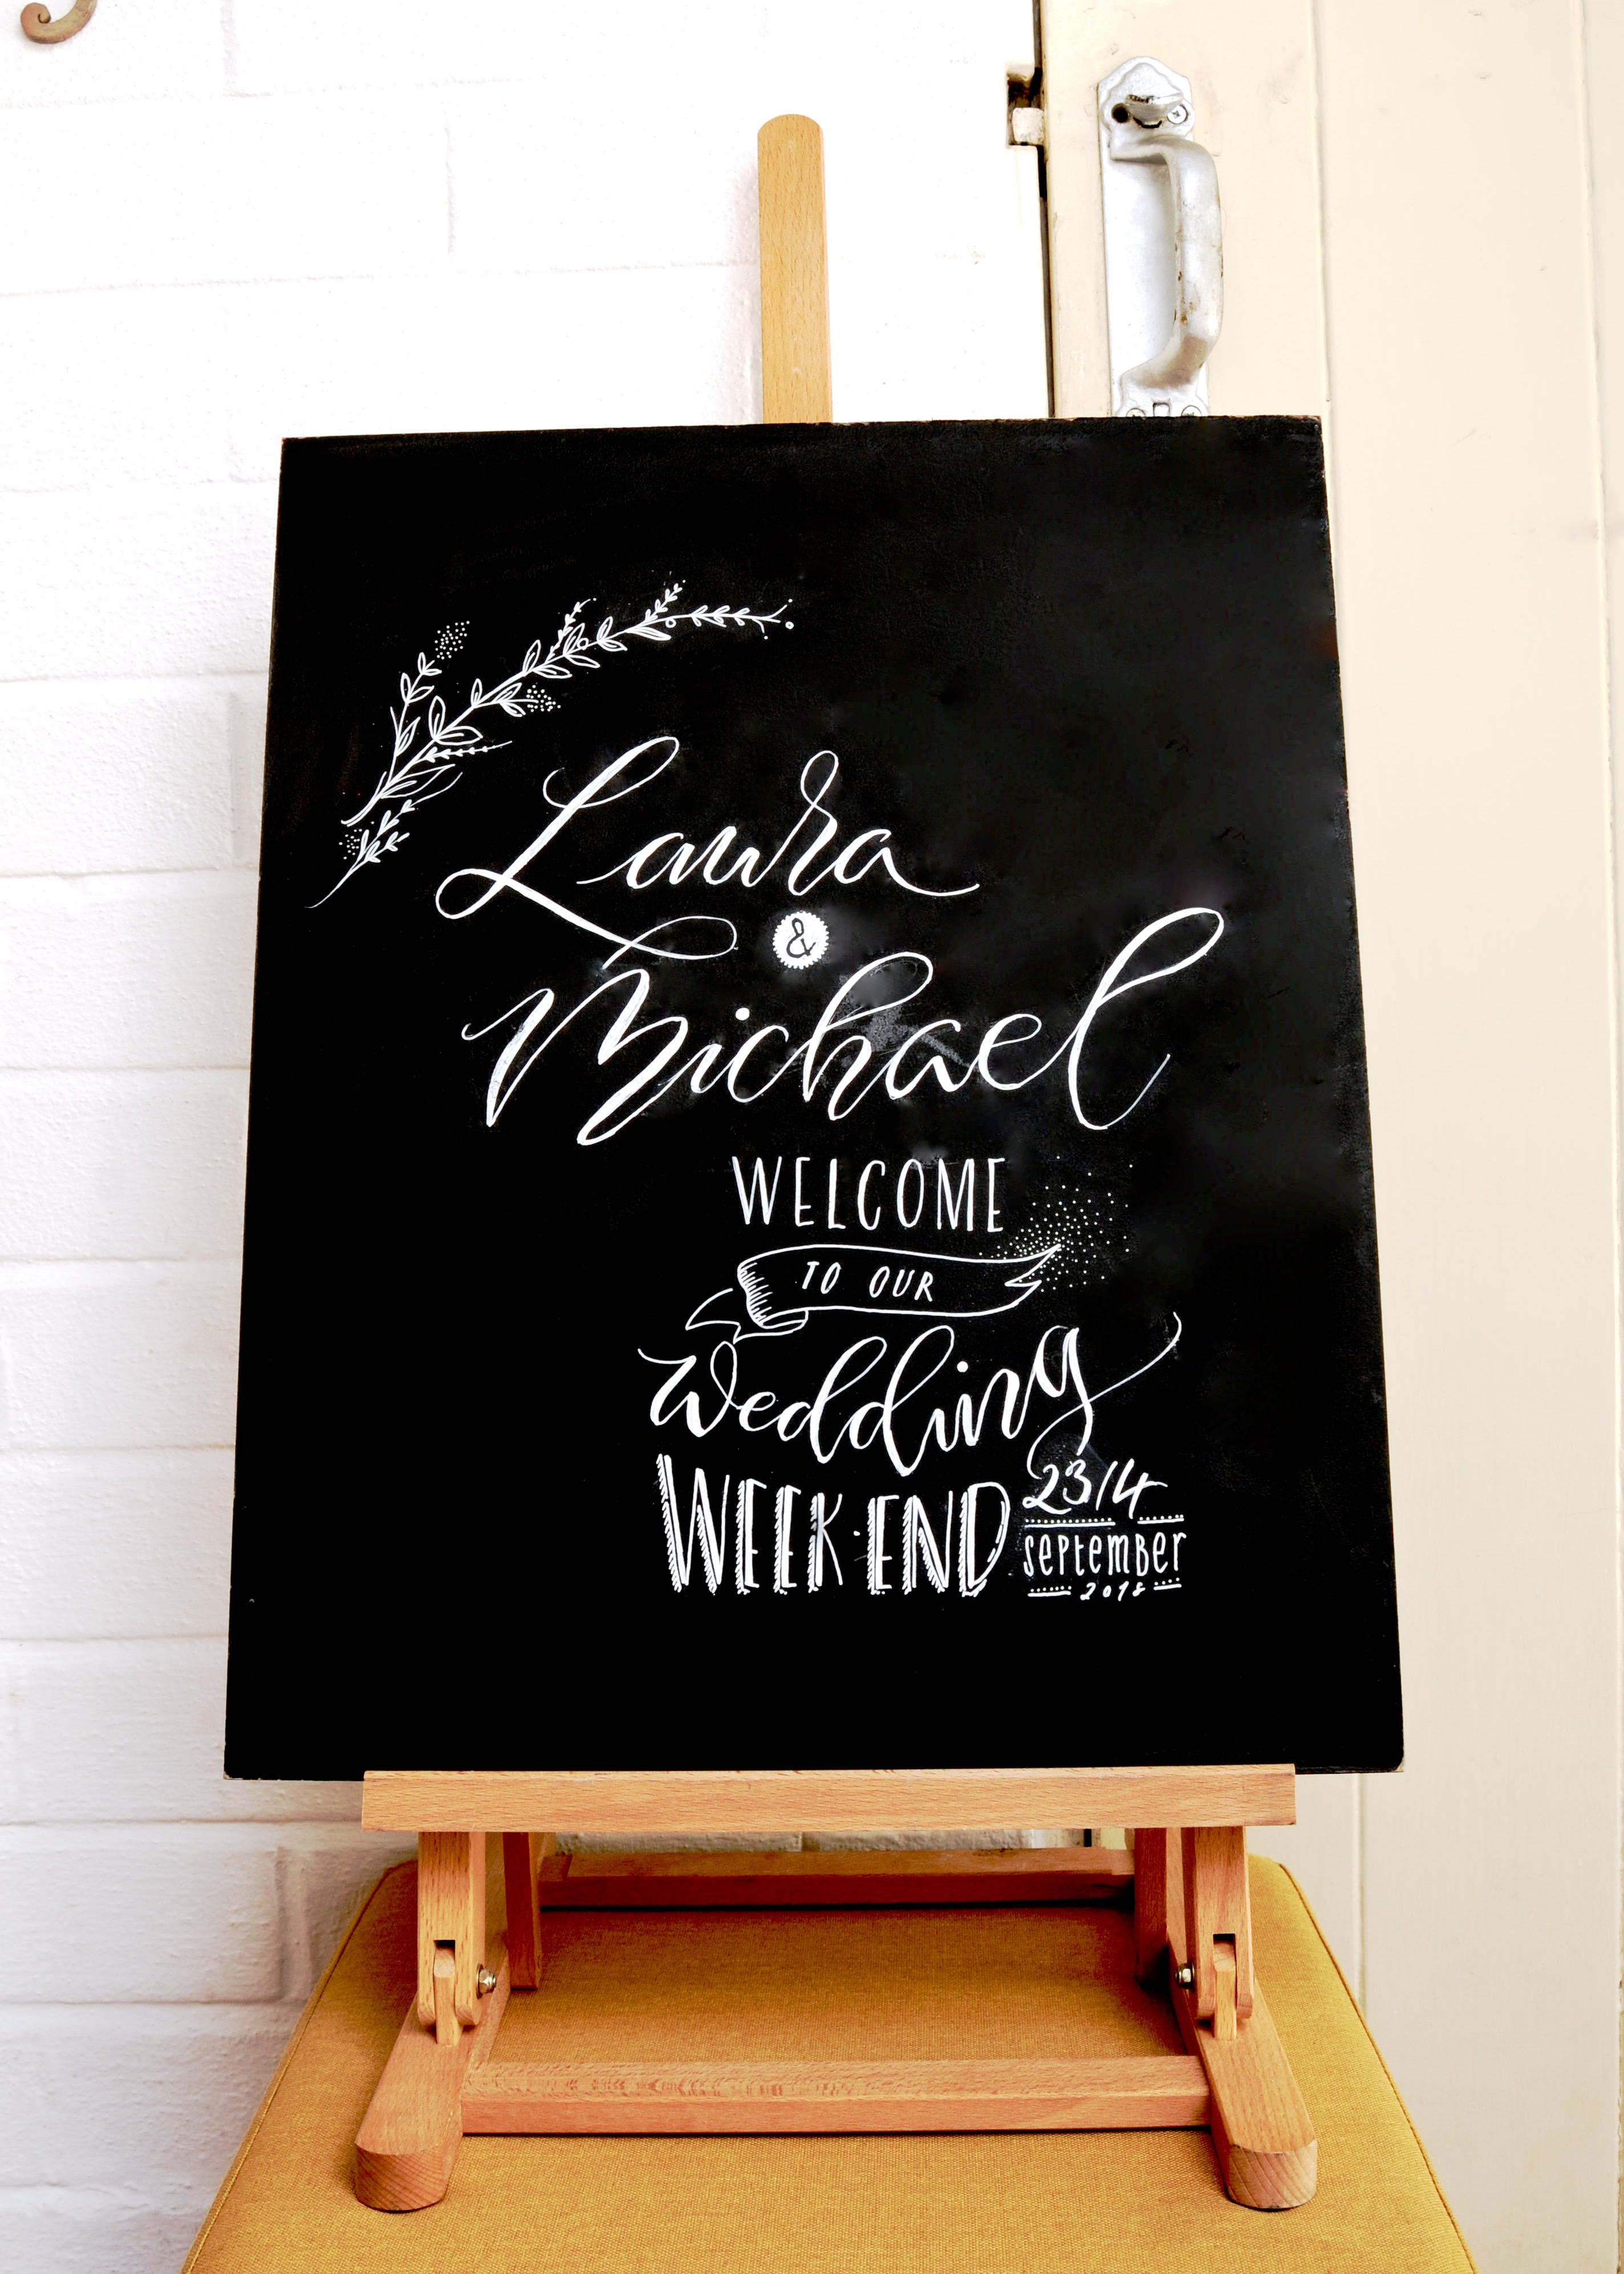 Laura
&
Michael
WELCOME
TO OUR
Wedding
WEEK-END
23/4
September
2018